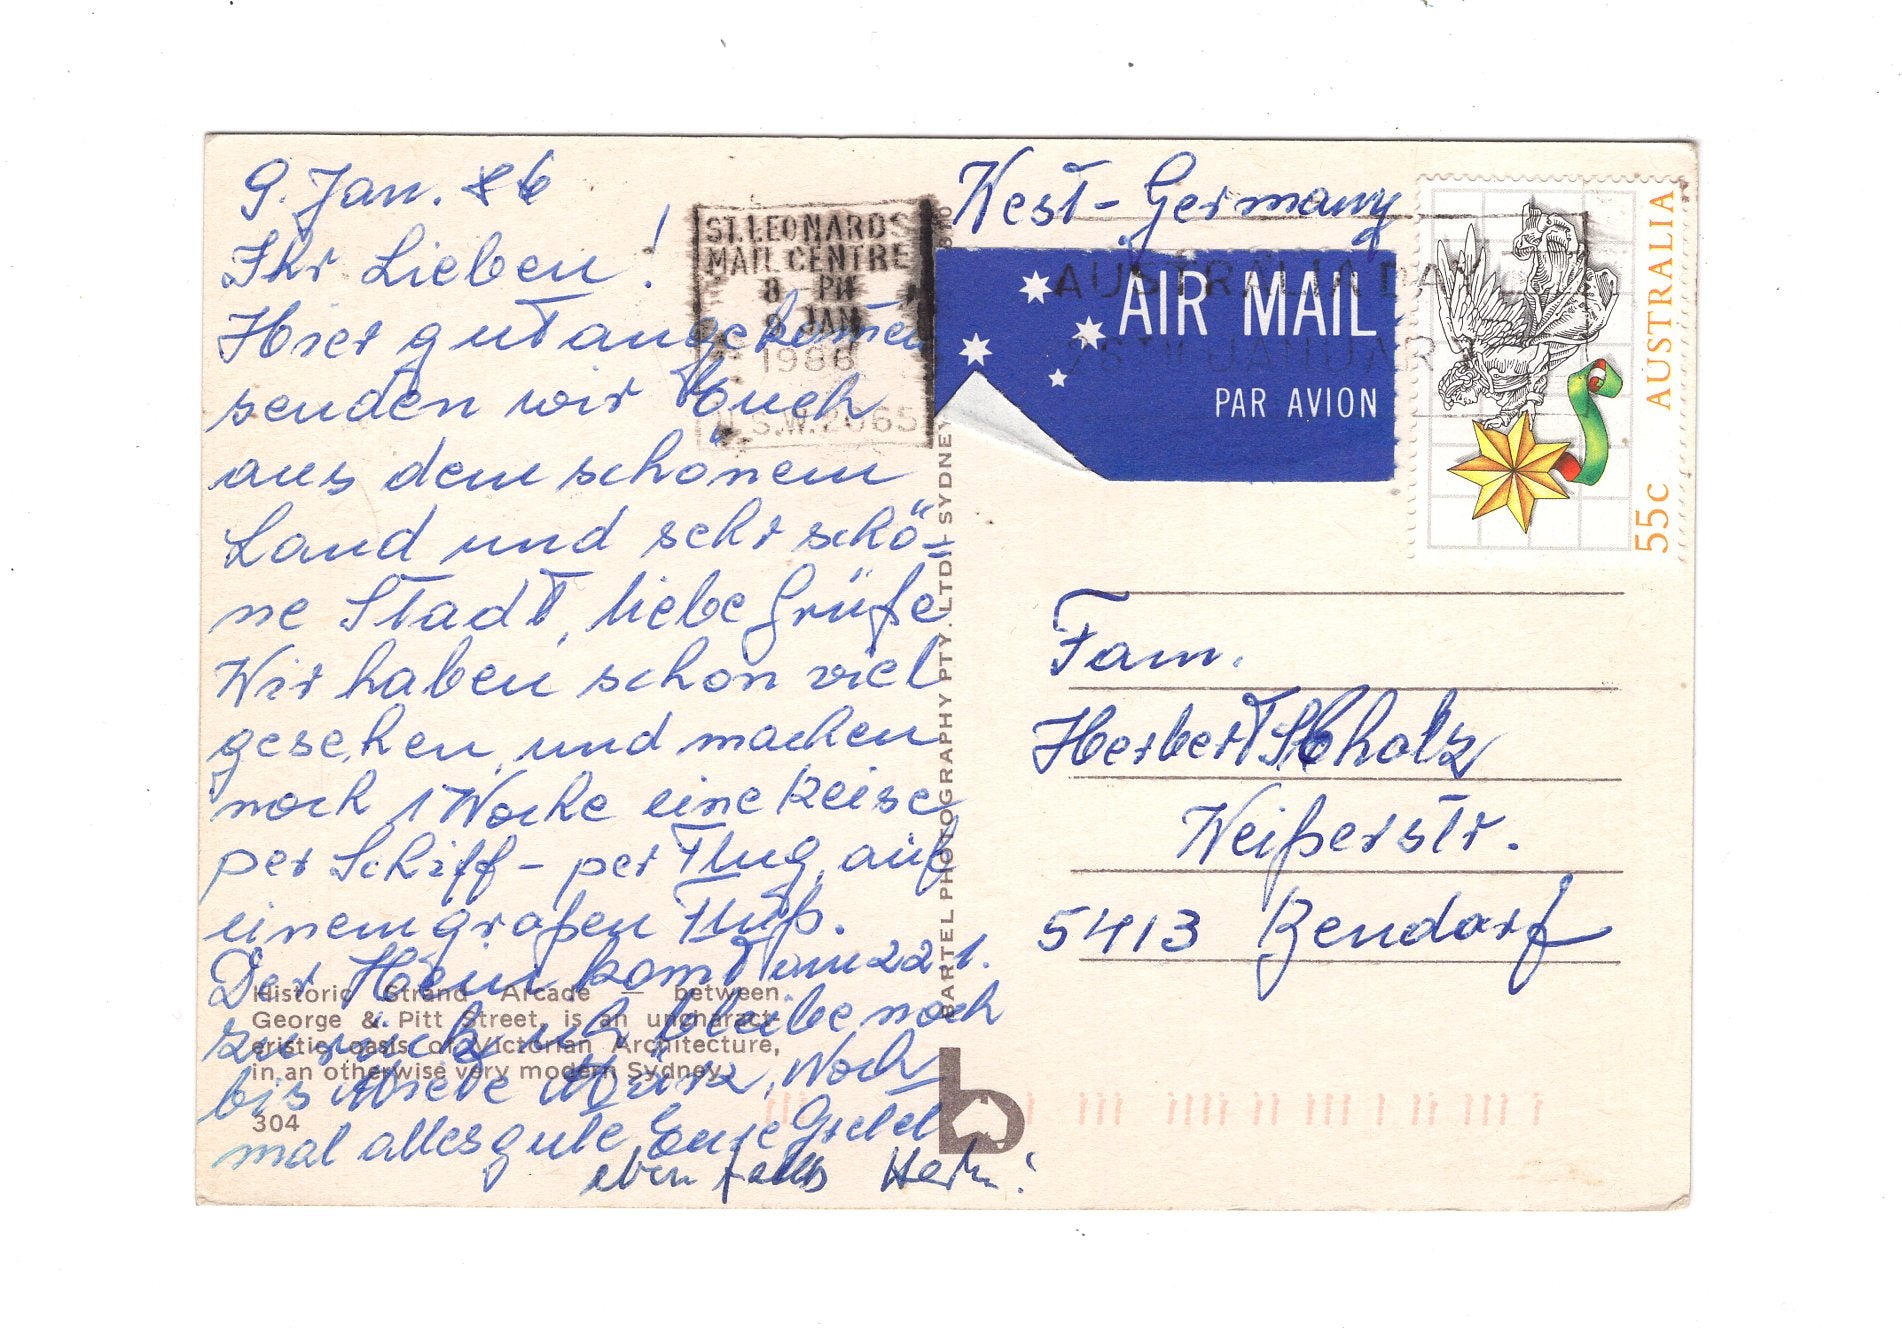 9. Jan. 86
Ihr Lieben!
Hier gut angekomen
senden wir Euch
aus dem schönem
Land und sehr schö-
ne Stadt, liebe Grüße
Wir haben schon viel
gesehen, und machen
noch 1 Woche eine Reise
per Schiff - per Flug, auf
einem großen Fluß.
Der Heini komt am 22.1.
zurück ich bleibe noch
bis Mitte März, Noch
mal alles gute Eure Gretel
ebenfalls Hein!
Historic Strand Arcade — between
George & Pitt Street, is an uncharact-
eristic oasis of Victorian Architecture,
in an otherwise very modern Sydney.
304
ST. LEONARDS
MAIL CENTRE
8 - PM
9 JAN
1986
N.S.W. 2065
BARTEL PHOTOGRAPHY PTY. LTD. SYDNEY
West-Germany
AUSTRALIA DAY
26TH JANUARY
AIR MAIL
PAR AVION
55c AUSTRALIA
Fam.
Herbert Scholz
Weißerstr.
5413 Bendorf
b